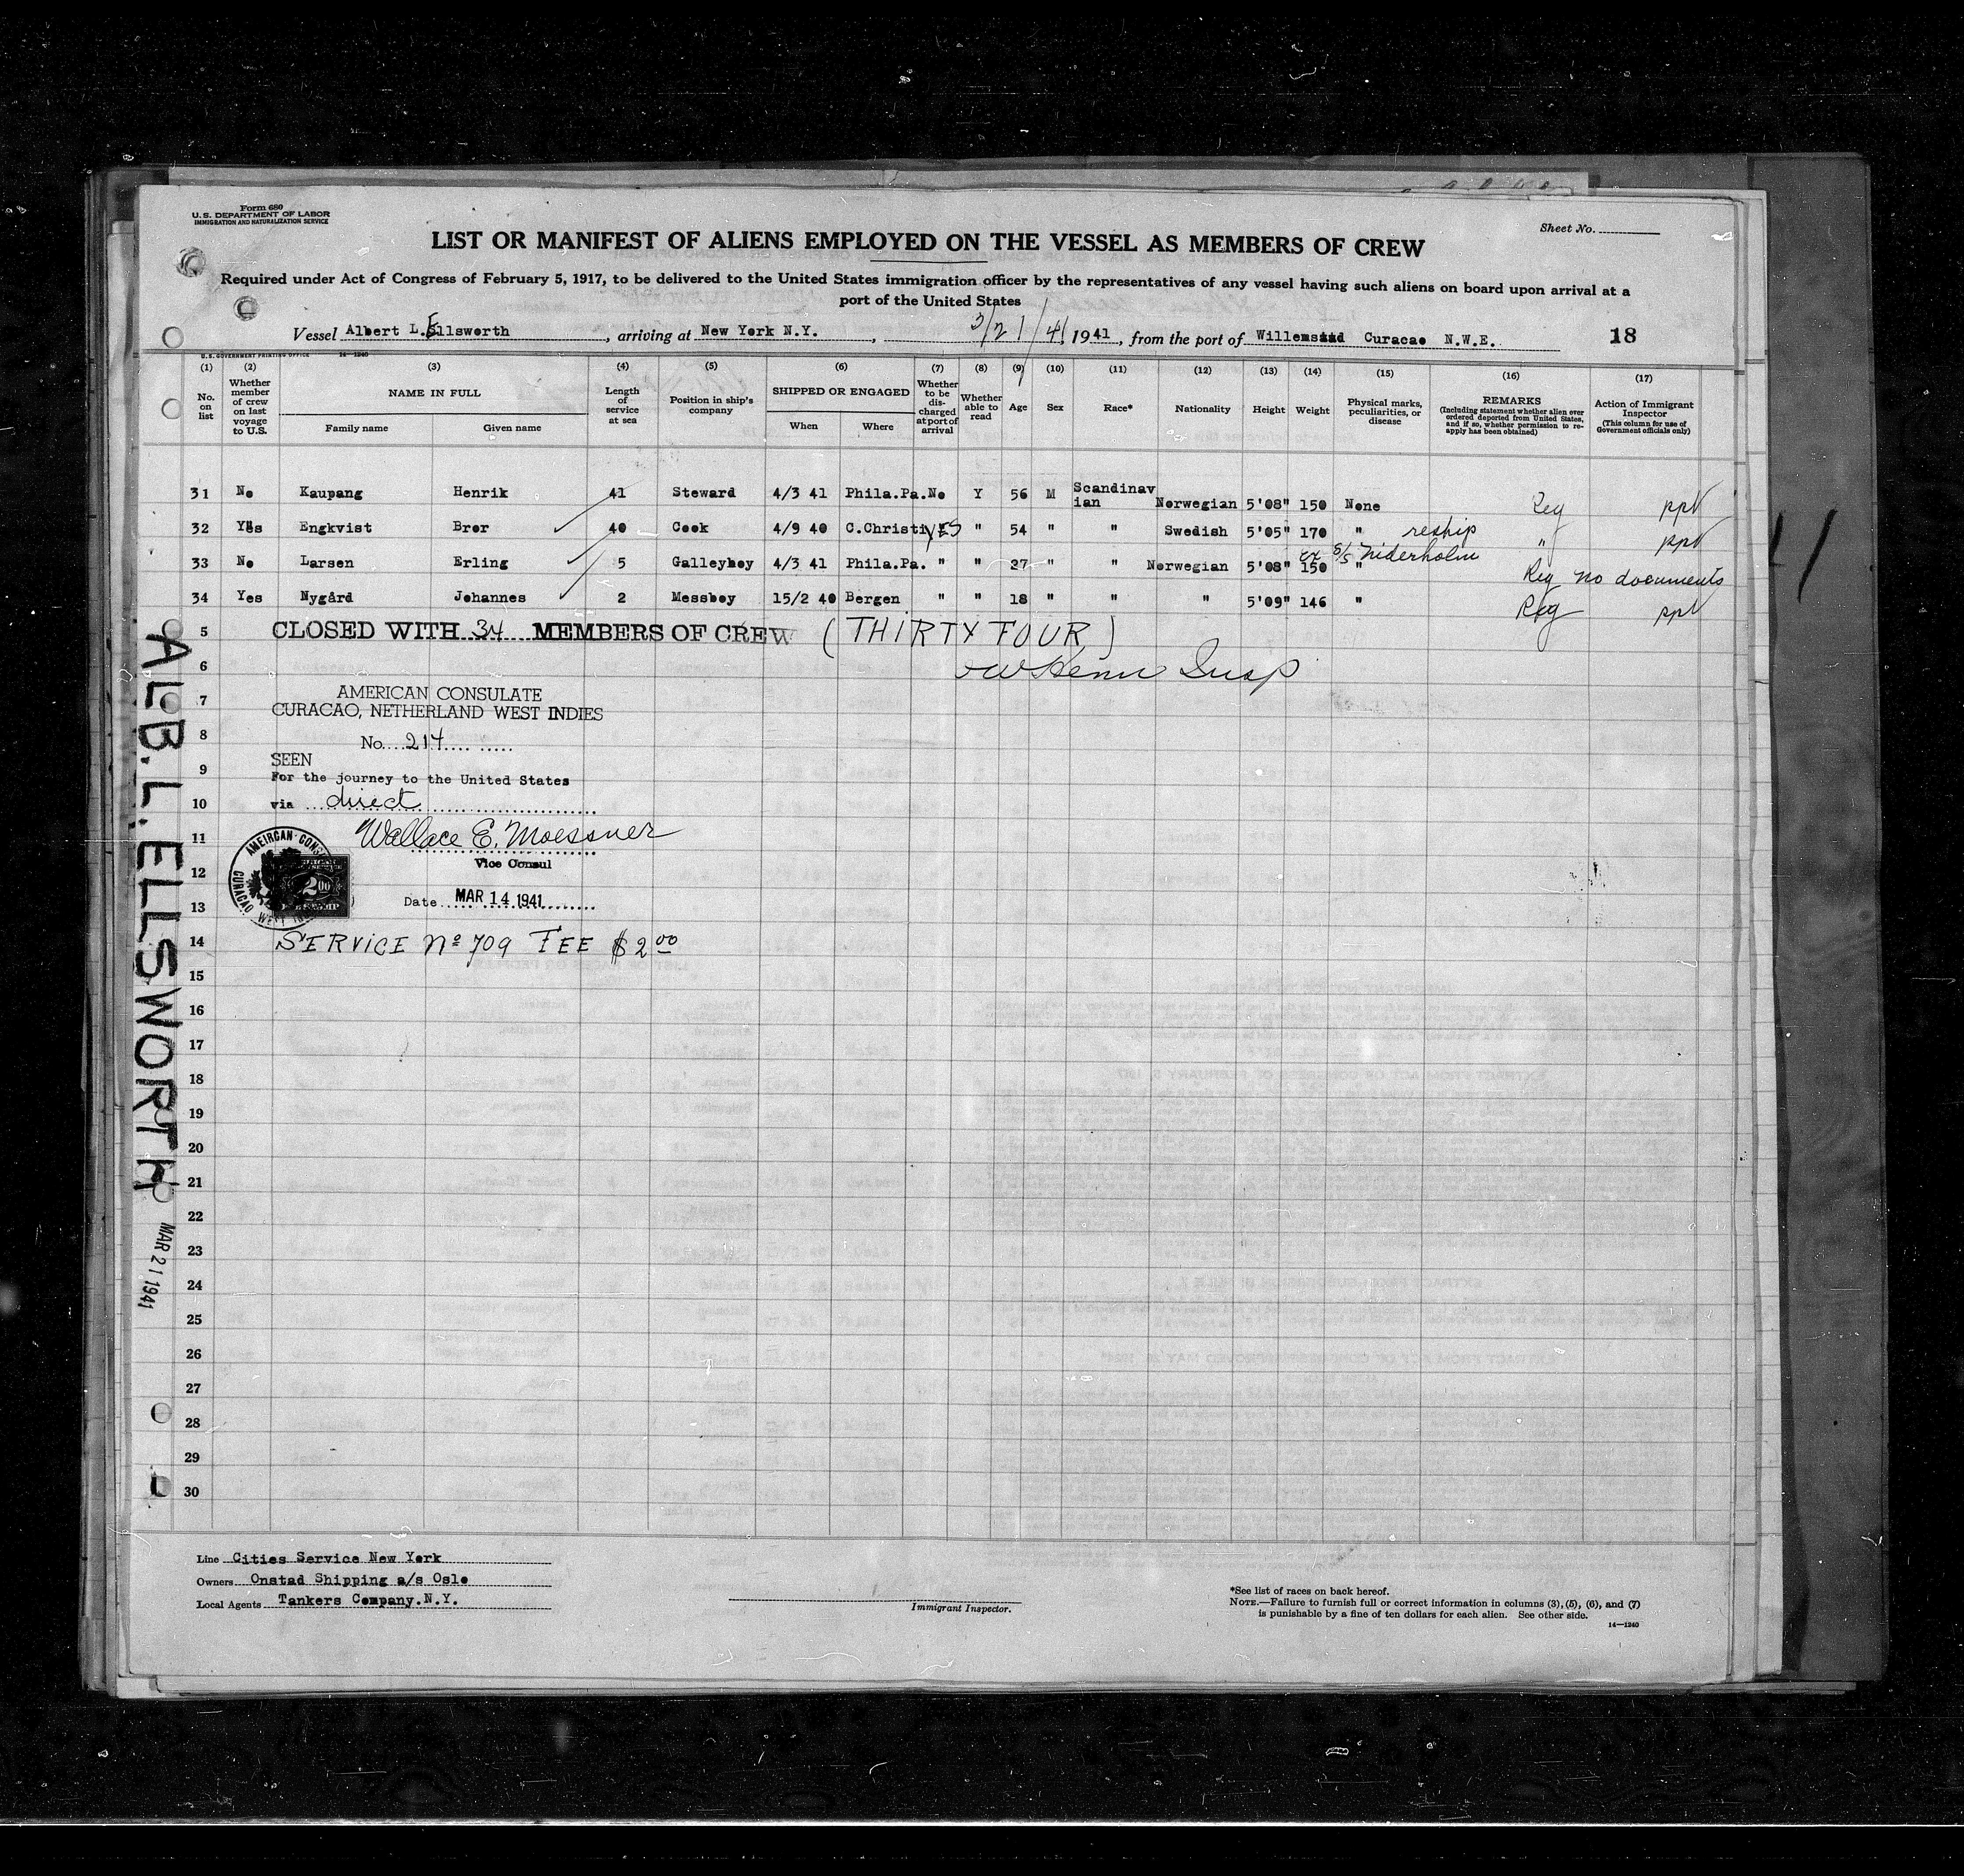 Form 680
U.S. DEPARTMENT OF LABOR
IMMIGRATION AND NATURALIZATION SERVICE
Sheet No.
LIST OR MANIFEST OF ALIENS EMPLOYED ON THE VESSEL AS MEMBERS OF CREW
Required under Act of Congress of February 5, 1917, to be delivered to the United States immigration officer by the representatives of any vessel having such aliens on board upon arrival at a
port of the United States
Vessel Albert L.Ellsworth, arriving at New York N.Y., 3/21/41 1941, from the port of Willemstad Curacao N.W.E. 18
U.S. GOVERNMENT PRINTING OFFICE 14—1240
(1) (2) (3) (4) (5) (6) (7) (8) (9) (10) (11) (12) (13) (14) (15) (16) (17)
No. on list
Whether member of crew on last voyage to U.S.
NAME IN FULL
Family name Given name
Length of service at sea
Position in ship's company
SHIPPED OR ENGAGED
When Where
Whether to be discharged at port of arrival
Whether able to read
Age
Sex
Race*
Nationality
Height
Weight
Physical marks, peculiarities, or disease
REMARKS
(Including statement whether alien ever ordered deported from United States, and if so, whether permission to reapply has been obtained)
Action of Immigrant Inspector
(This column for use of Government officials only)
31 No Kaupang Henrik 41 Steward 4/3 41 Phila.Pa. No Y 56 M Scandinavian Norwegian 5'08" 150 None Reg ppt
32 Yes Engkvist Bror 40 Cook 4/9 40 C.Christi YES " 54 " " Swedish 5'05" 170 " reship " ppt
33 No Larsen Erling 5 Galleyboy 4/3 41 Phila.Pa. " " 27 " " Norwegian 5'08" 150 " ex S/S Niderholm Reg no documents
34 Yes Nygård Johannes 2 Messboy 15/2 40 Bergen " " 18 " " " 5'09" 146 " Reg ppt
5 CLOSED WITH 34 MEMBERS OF CREW (THIRTY FOUR)
6 Insp
AMERICAN CONSULATE
7 CURACAO, NETHERLAND WEST INDIES
8 No. 214
SEEN
9 For the journey to the United States
10 via direct
11 Wallace E. Moessner
Vice Consul
AMEIRCAN CONSU
CURACAO WEST
2.00
12
13 Date MAR 14 1941
14 SERVICE No 709 FEE $2.00
15
16
17
18
19
20
21
22
23
24
25
26
27
28
29
30
ALB. L. ELLSWORTH
MAR 21 1941
Line Cities Service New York
Owners Onstad Shipping a/s Oslo
Local Agents Tankers Company.N.Y.
Immigrant Inspector.
*See list of races on back hereof.
NOTE.—Failure to furnish full or correct information in columns (3), (5), (6), and (7)
is punishable by a fine of ten dollars for each alien. See other side.
14—1240